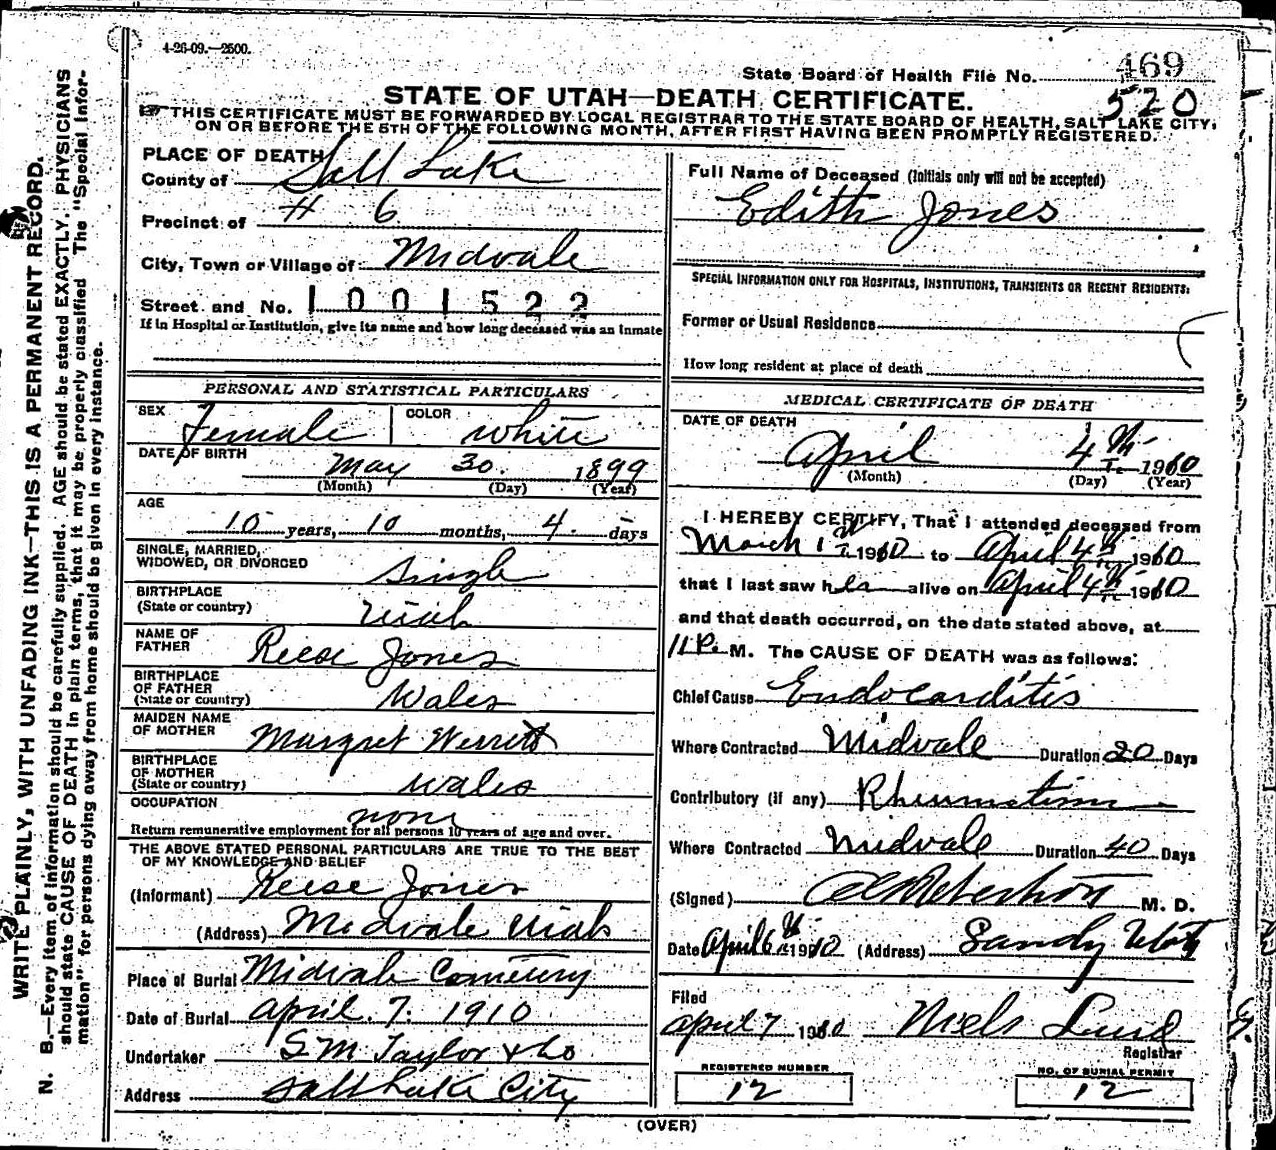 4-26-09.—2500.
State Board of Health File No. 469
520
STATE OF UTAH—DEATH CERTIFICATE.
THIS CERTIFICATE MUST BE FORWARDED BY LOCAL REGISTRAR TO THE STATE BOARD OF HEALTH, SALT LAKE CITY,
ON OR BEFORE THE 5TH OF THE FOLLOWING MONTH, AFTER FIRST HAVING BEEN PROMPTLY REGISTERED.
PLACE OF DEATH
County of Salt Lake
Precinct of # 6
City, Town or Village of Midvale
Street and No. 1001522
If in Hospital or Institution, give its name and how long deceased was an inmate
PERSONAL AND STATISTICAL PARTICULARS
SEX Female COLOR White
DATE OF BIRTH May 30. 1899
(Month) (Day) (Year)
AGE
10 years, 10 months, 4 days
SINGLE, MARRIED,
WIDOWED, OR DIVORCED Single
BIRTHPLACE
(State or country) Utah
NAME OF
FATHER Reese Jones
BIRTHPLACE
OF FATHER
(State or country) Wales
MAIDEN NAME
OF MOTHER Margret Werrett
BIRTHPLACE
OF MOTHER
(State or country) Wales
OCCUPATION none
Return remunerative employment for all persons 10 years of age and over.
THE ABOVE STATED PERSONAL PARTICULARS ARE TRUE TO THE BEST
OF MY KNOWLEDGE AND BELIEF
(Informant) Reese Jones
(Address) Midvale Utah
Place of Burial Midvale Cemetery
Date of Burial April. 7. 1910
Undertaker S. M. Taylor & Co
Address Salt Lake City
Full Name of Deceased (Initials only will not be accepted)
Edith Jones
SPECIAL INFORMATION ONLY FOR HOSPITALS, INSTITUTIONS, TRANSIENTS OR RECENT RESIDENTS:
Former or Usual Residence
How long resident at place of death
MEDICAL CERTIFICATE OF DEATH
DATE OF DEATH
April 4th 1910
(Month) (Day) (Year)
I HEREBY CERTIFY, That I attended deceased from
March 1st 1910 to April 4th 1910
that I last saw her alive on April 4th 1910
and that death occurred, on the date stated above, at
11 P. M. The CAUSE OF DEATH was as follows:
Chief Cause Endocarditis
Where Contracted Midvale Duration 20 Days
Contributory (if any) Rheumatism
Where Contracted Midvale Duration 40 Days
(Signed) Robertson M. D.
Date April 6th 1910 (Address) Sandy Utah
Filed
April 7 1910 Niels Lund
Registrar
REGISTERED NUMBER
12
NO. OF BURIAL PERMIT
12
(OVER)
WRITE PLAINLY, WITH UNFADING INK—THIS IS A PERMANENT RECORD.
N. B.—Every item of information should be carefully supplied. AGE should be stated EXACTLY. PHYSICIANS
should state CAUSE OF DEATH in plain terms, that it may be properly classified The "Special Infor-
mation" for persons dying away from home should be given in every instance.